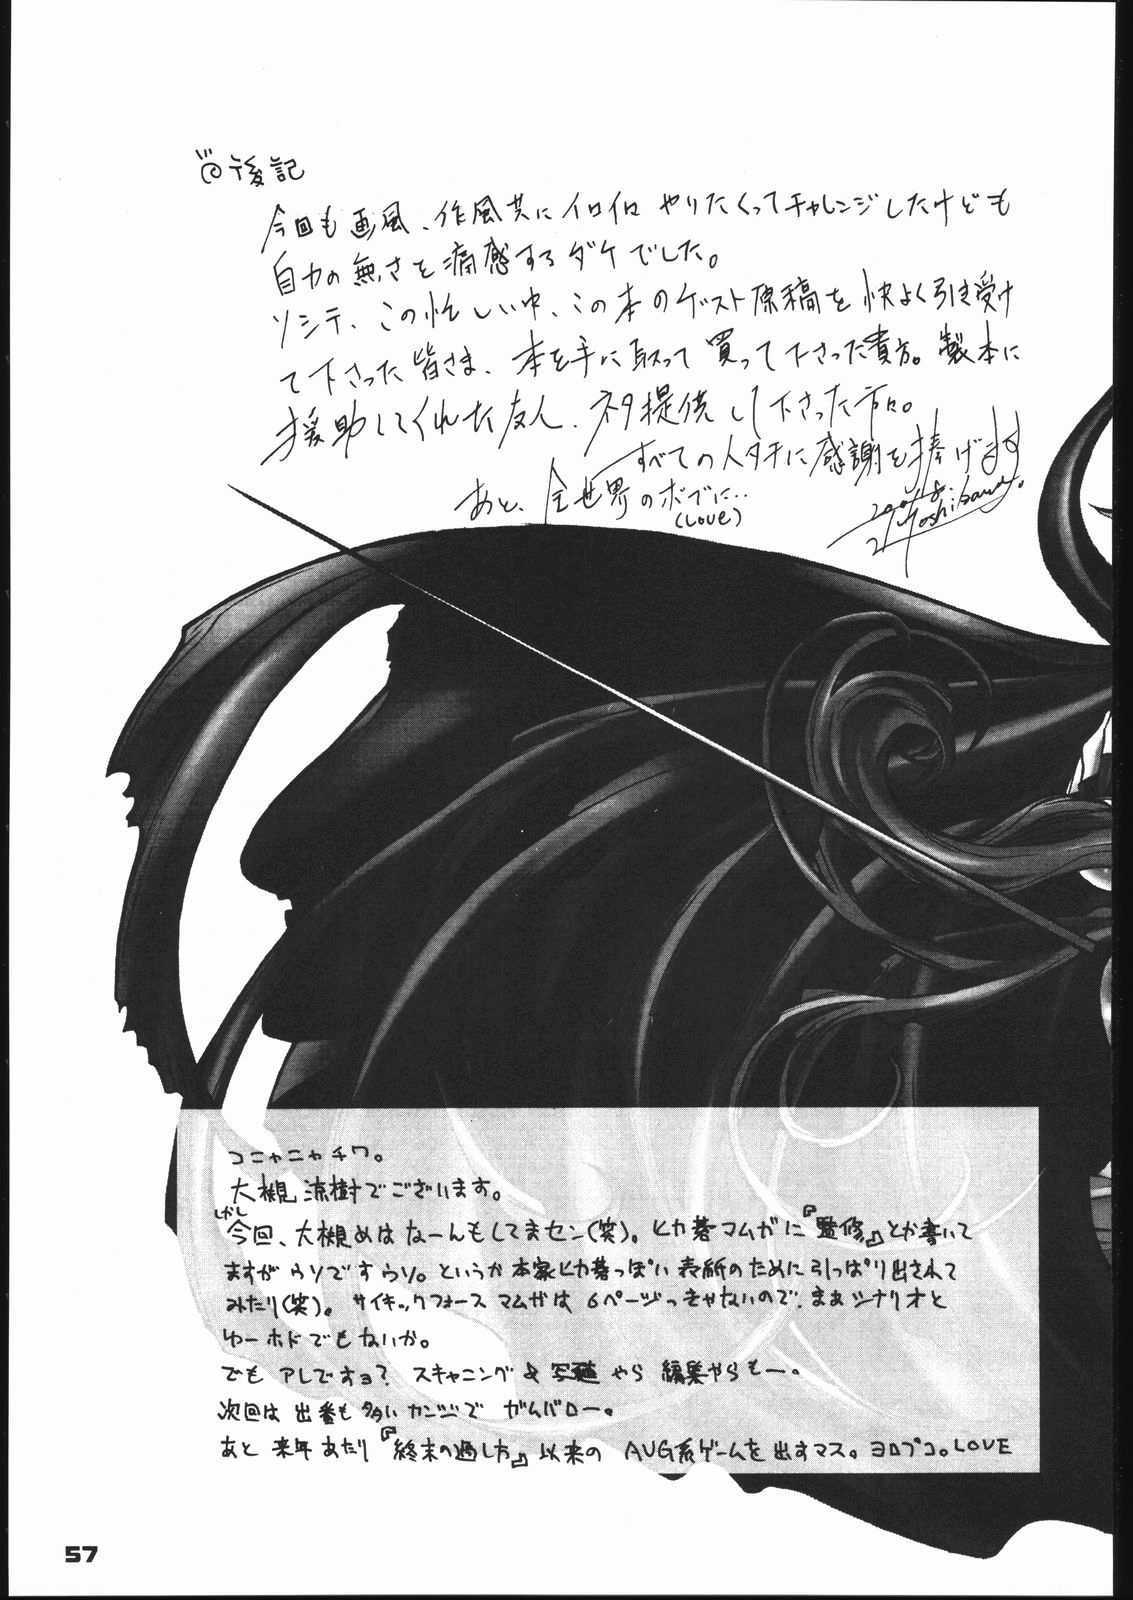 後記
今回も画風、作風共にイロイロ やりたくってチャレンジしたけども
自力の無さを痛感するダケでした。
ソシテ、この忙しい中、この本のゲスト原稿を快よく引き受け
て下さった皆さま、本を手に取って買って下さった貴方。製本に
援助してくれた友人、ネタ提供して下さった方々。
すべての人タチに感謝を捧げます
あと、全世界のボブに‥
(LOVE)
コニャニャチワ。
大槻涼樹でございます。
今回、大槻めはなーんもしてまセン(笑)。ヒカ碁マムガに『監修』とか書いて
ますがウソですウソ。というか本家ヒカ碁っぽい表紙のために引っぱり出されて
みたり(笑)。サイキックフォースマムガは6ページっきゃないので、まぁシナリオと
ゆーホドでもないか。
でもアレですョ? スキャニング&写植やら編集やらもー。
次回は出番も多いカンジでガムバロー。
あと来年あたり『終末の過し方』以来のAVG系ゲームを出すマス。ヨロプコ。LOVE
57